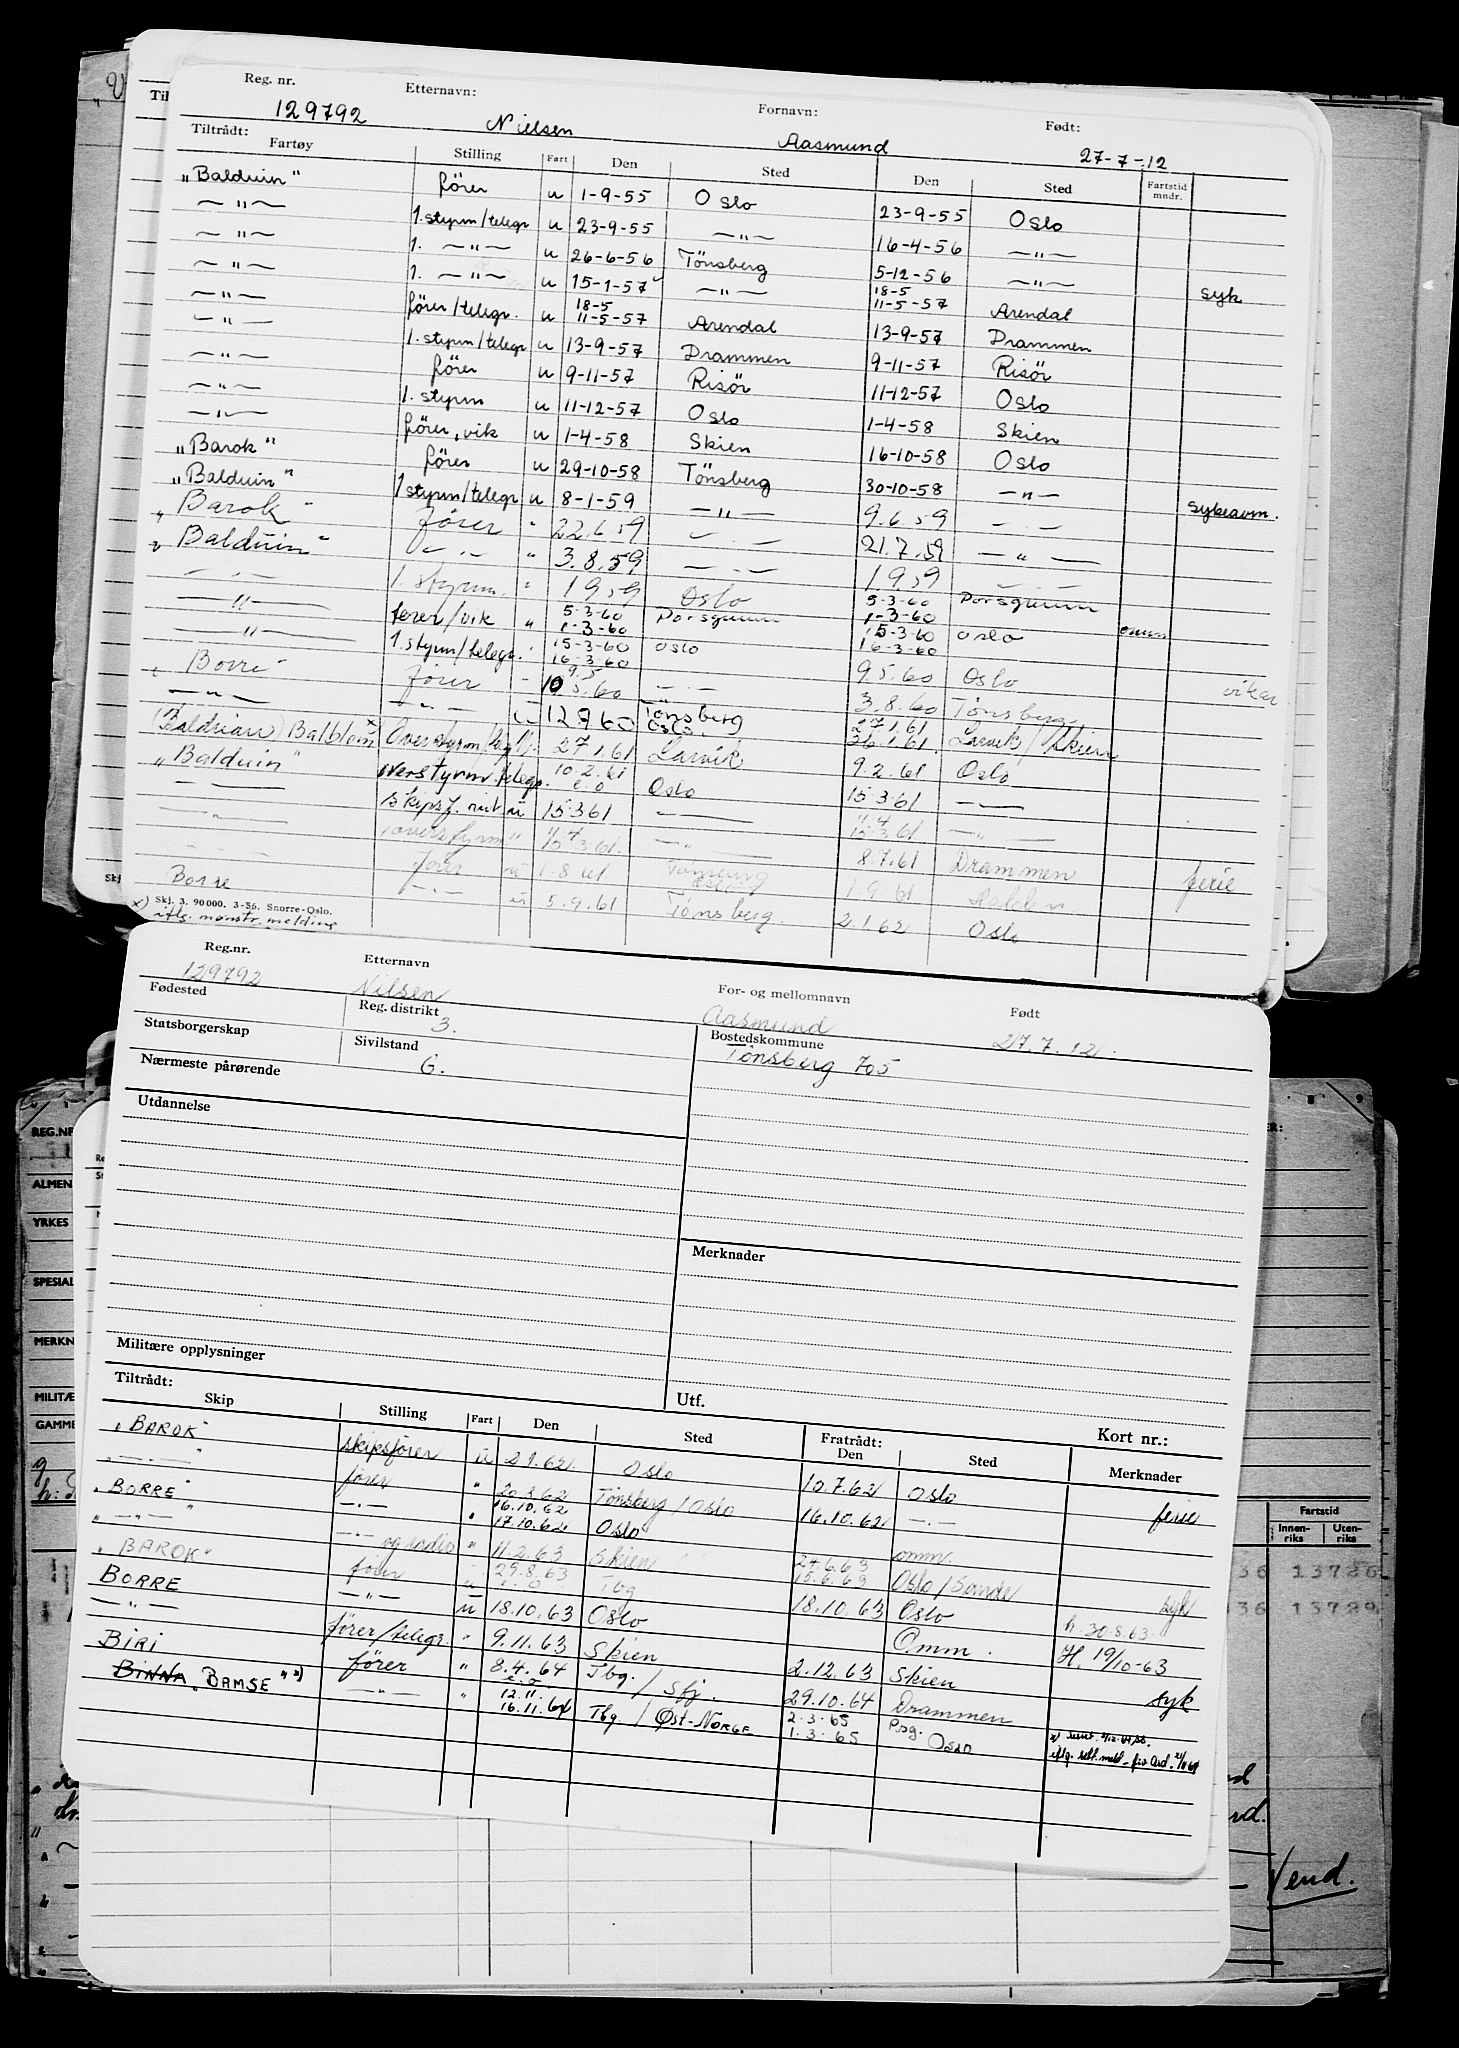 Reg. nr. Etternavn: Fornavn: Født:
129792 Nielsen Aasmund 27-7-12
Tiltrådt:
Fartøy Stilling Fart Den Sted Den Sted Fartstid mndr.
"Balduin" fører u 1-9-55 Oslo 23-9-55 Oslo
—"— 1. styrm/telegr u 23-9-55 —"— 16-4-56 —"—
—"— 1. —"— u 26-6-56 Tönsberg 5-12-56 —"— syk
—"— 1. —"— u 15-1-57 —"— 18-5 11-5-57 Arendal
—"— fører/telegr. u 18-5 11-5-57 Arendal 13-9-57 Drammen
—"— 1. styrm/telegr u 13-9-57 Drammen 9-11-57 Risör
—"— fører u 9-11-57 Risör 11-12-57 Oslo
—"— 1. styrm u 11-12-57 Oslo 1-4-58 Skien
—"— fører, vik u 1-4-58 Skien 16-10-58 Oslo
"Barok" fører u 29-10-58 Tönsberg 30-10-58 —"—
"Balduin" 1 styrm/telegr u 8-1-59 —"— 9.6.59 —"— sykeavm.
"Barok" fører " 22.6.59 —"— 21.7.59 —"—
"Balduin" —"— " 3.8.59 —"— 1.9.59 —"—
—"— 1. styrm. " 1.9.59 Oslo 5-3-60 1-3-60 Porsgrunn
—"— fører/vik " 5-3-60 1-3-60 Porsgrunn 15-3-60 16-3-60 Oslo omm.
—"— 1. styrm/telegr. " 15-3-60 16-3-60 Oslo 9.5.60 Oslo
"Borre" fører " 9.5 10.5.60 —"— 3.8.60 Tönsberg vikar
—"— —"— u 12.9.60 Tönsberg Oslo 27.1.61 26.1.61 Larvik / Skien
(Baldrian) Balblom x Overstyrm/ 27.1.61 Larvik 9.2.61 Oslo
"Balduin" overstyrm. telegr. 10.2.61 e.o Oslo 15.3.61 —"—
—"— skipsf. u 15.3.61 —"— 11.4 15.3.61 —"—
—"— overstyrm " 11.4 15.3.61. —"— 8.7.61 Drammen ferie
fører u 1.8.61 Tönsberg 1.9.61
Borre —"— u 5.9.61 Tönsberg 2.1.62 Oslo
Skj. 3. 90000. 3-56. Snorre-Oslo.
x) iflg. mønstr. melding
Reg.nr. Etternavn For- og mellomnavn Født
129792 Nilsen Aasmund 27.7.12.
Fødested Reg. distrikt 3. Bostedskommune
Statsborgerskap Sivilstand G. Tönsberg 705
Nærmeste pårørende
Utdannelse
Merknader
Militære opplysninger
Utf.
Tiltrådt: Kort nr.:
Skip Stilling Fart Den Sted Fratrådt: Den Sted Merknader
"BAROK" skipsfører u 2.1.62. Oslo 10.7.62 Oslo ferie
—"— fører " 20.8.62 Tönsberg / Oslo 16.10.62 —"—
"BORRE" —"— " 16.10.62 17.10.62 Oslo omm.
—"— —"— og radio " 11.2.63 Skien 24.6.63 15.6.63 Oslo / Sande syk
"BAROK" fører 29.8.63 e.o. Tbg 18.10.63 Oslo h. 30.8.63.
BORRE —"— u 18.10.63 Oslo Omm. H. 19/10-63
—"— fører/telegr. " 9.11.63 Skien 2.12.63 Skien syk
BIRI fører " 8.4.64 e.o. Tbg. / Sfj. 29.10.64 Drammen
BINNA "BAMSE" x) —"— " 12.11. 16.11.64 Tbg. / Øst-NORGE 2.3.65 1.3.65 Prsg. OSLO
REG.NR
ALMEN
YRKES
SPESIAL
MERKN
MILITÆ
GAMME
Fartstid
Innenriks Utenriks
13786
13789
/end.